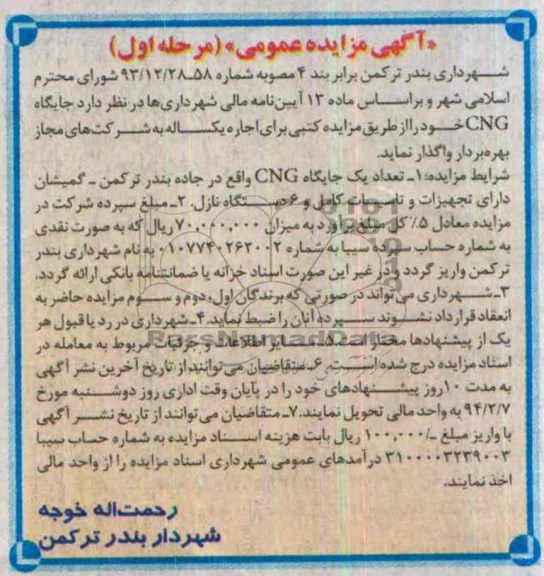 «آگهی مزایده عمومی» (مرحله اول)
شهرداری بندر ترکمن برابر بند ۴ مصوبه شماره ۵۸ـ۹۳/۱۲/۲۸ شورای محترم
اسلامی شهر و براساس ماده ۱۳ آیین‌نامه مالی شهرداری‌ها در نظر دارد جایگاه
CNG خود را از طریق مزایده کتبی برای اجاره یکساله به شرکت‌های مجاز
بهره‌بردار واگذار نماید.
شرایط مزایده: ۱ـ تعداد یک جایگاه CNG واقع در جاده بندر ترکمن ـ گمیشان
دارای تجهیزات و تاسیسات کامل و ۶ دستگاه نازل. ۲ـ مبلغ سپرده شرکت در
مزایده معادل ۵٪ کل مبلغ برآورد به میزان ۷۰,۰۰۰,۰۰۰ ریال که به صورت نقدی
به شماره حساب سپرده سیبا به شماره ۰۱۰۷۷۴۰۲۶۲۰۰۲ به نام شهرداری بندر
ترکمن واریز گردد و در غیر این صورت اسناد خزانه یا ضمانتنامه بانکی ارائه گردد.
۳ـ شهرداری می‌تواند در صورتی که برندگان اول، دوم و سوم مزایده حاضر به
انعقاد قرارداد نشوند سپرده آنان را ضبط نماید. ۴ـ شهرداری در رد یا قبول هر
یک از پیشنهادها مختار است. ۵ـ سایر اطلاعات و جزئیات مربوط به معامله در
اسناد مزایده درج شده است. ۶ـ متقاضیان می‌توانند از تاریخ آخرین نشر آگهی
به مدت ۱۰ روز پیشنهادهای خود را در پایان وقت اداری روز دوشنبه مورخ
۹۴/۲/۷ به واحد مالی تحویل نمایند. ۷ـ متقاضیان می‌توانند از تاریخ نشر آگهی
با واریز مبلغ ـ/۱۰۰,۰۰۰ ریال بابت هزینه اسناد مزایده به شماره حساب سیبا
۳۱۰۰۰۰۳۲۳۹۰۰۳ درآمدهای عمومی شهرداری اسناد مزایده را از واحد مالی
اخذ نمایند.
رحمت‌اله خوجه
شهردار بندر ترکمن